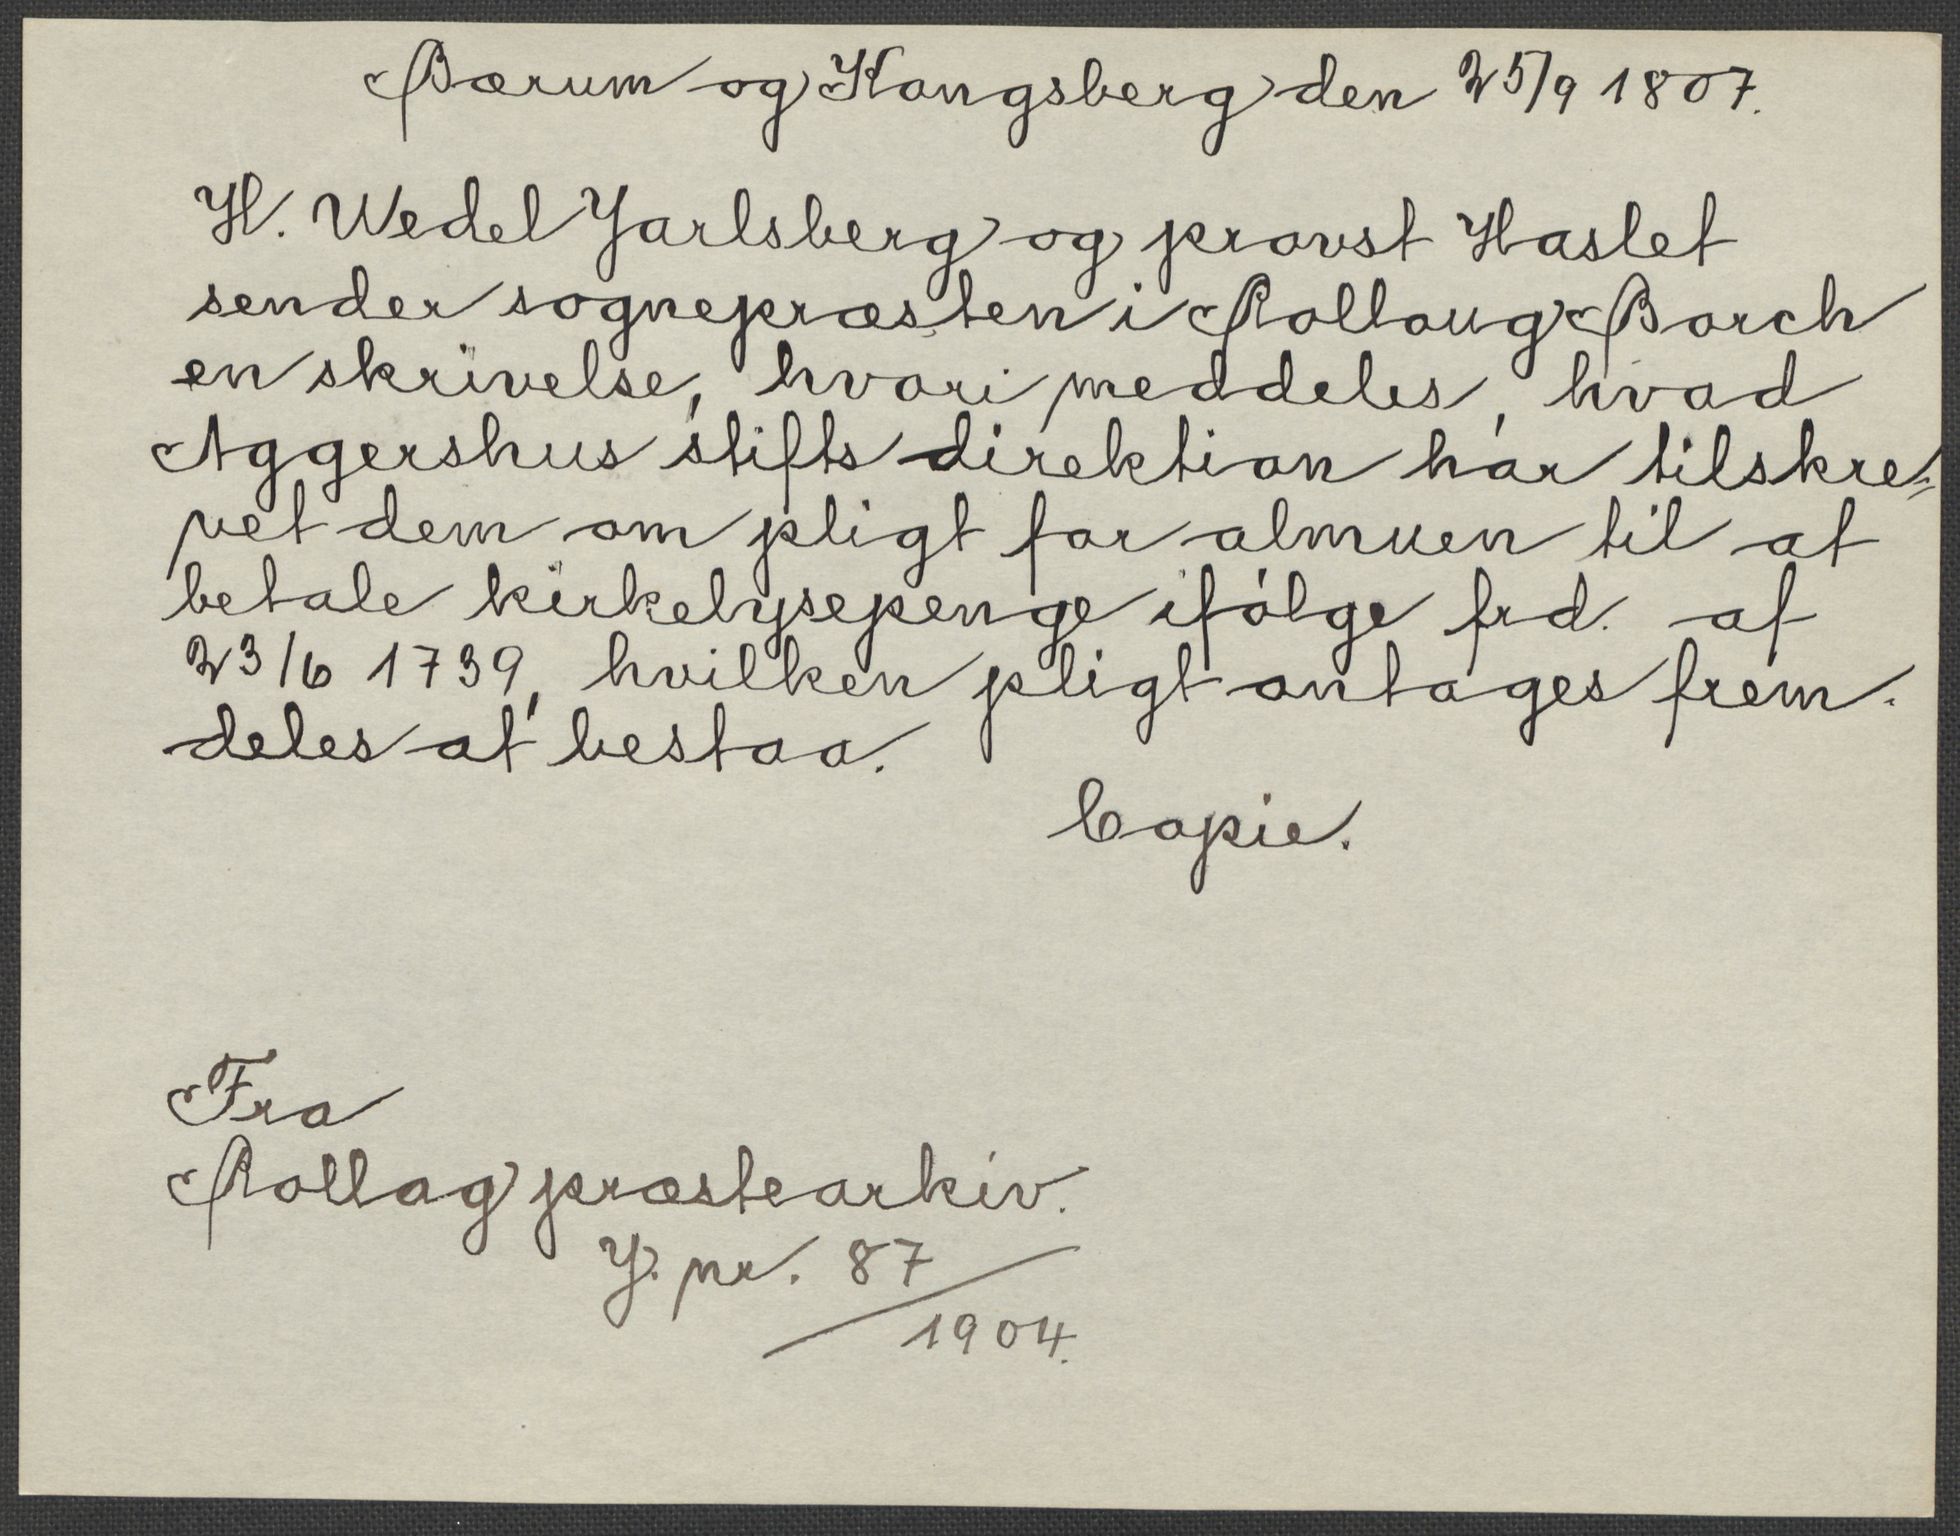 Bærum og Kongsberg den 25/9 1807.
H. Wedel Jarlsberg og provst Haslet
sender sognepræsten i Rolloug Borch
en skrivelse, hvori meddeles, hvad
Aggershus stifts direktion har tilskre-
vet dem om pligt for almuen til at
betale kirkelysepenge ifölge frd. af
23/6 1739, hvilken pligt antages frem-
deles at bestaa.
Copie.
Fra
Rollag præstearkiv.
J. nr. 87/1904.